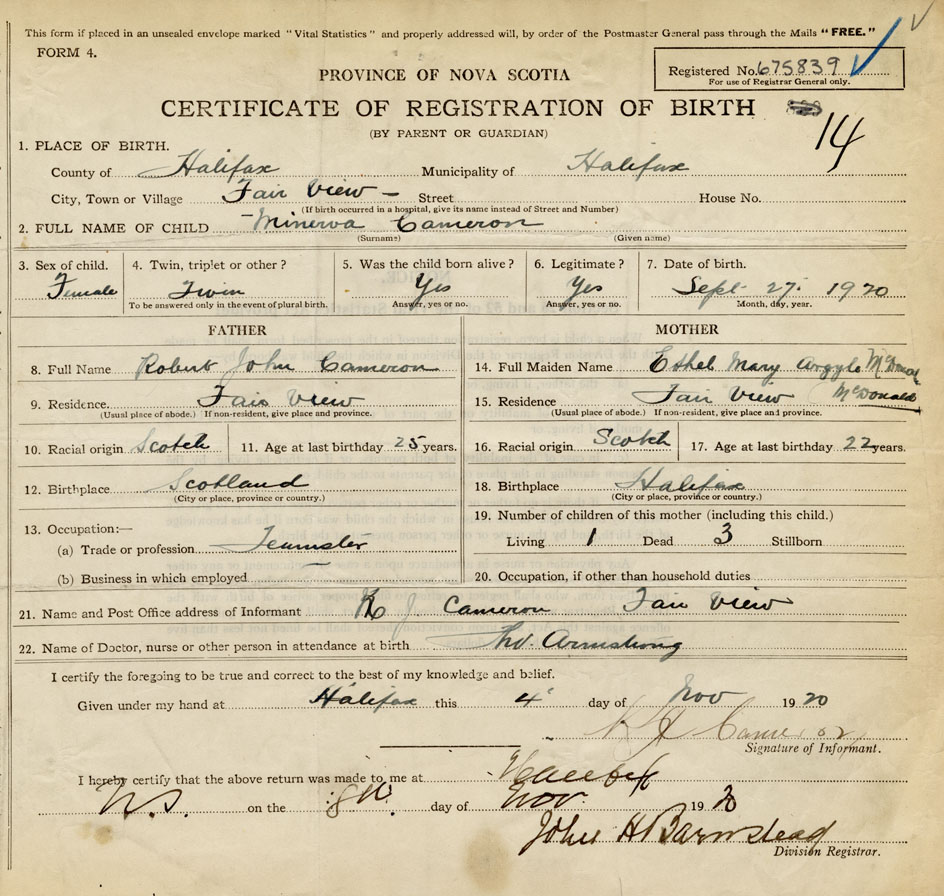 This form if placed in an unsealed envelope marked "Vital Statistics" and properly addressed will, by order of the Postmaster General pass through the Mails "FREE."
FORM 4.
Registered No. 675839
For use of Registrar General only.
PROVINCE OF NOVA SCOTIA
CERTIFICATE OF REGISTRATION OF BIRTH
(BY PARENT OR GUARDIAN)
14
1. PLACE OF BIRTH.
County of Halifax Municipality of Halifax
City, Town or Village Fair View — Street House No.
(If birth occurred in a hospital, give its name instead of Street and Number)
2. FULL NAME OF CHILD Minerva Cameron
(Surname) (Given name)
3. Sex of child. 4. Twin, triplet or other? 5. Was the child born alive? 6. Legitimate? 7. Date of birth.
Female Twin Yes Yes Sept 27. 1920
To be answered only in the event of plural birth. Answer, yes or no. Answer, yes or no. Month, day, year.
FATHER
8. Full Name Robert John Cameron
9. Residence. Fair View
(Usual place of abode.) If non-resident, give place and province.
10. Racial origin Scotch 11. Age at last birthday 25 years.
12. Birthplace Scotland
(City or place, province or country.)
13. Occupation:—
(a) Trade or profession Teamster
(b) Business in which employed
MOTHER
14. Full Maiden Name Ethel Mary Argyle
McDonald
15. Residence Fair View
(Usual place of abode.) If non-resident, give place and province.
16. Racial origin Scotch 17. Age at last birthday 22 years.
18. Birthplace Halifax
(City or place, province or country.)
19. Number of children of this mother (including this child.)
Living 1 Dead 3 Stillborn
20. Occupation, if other than household duties
21. Name and Post Office address of Informant R J Cameron Fair View
22. Name of Doctor, nurse or other person in attendance at birth Armstrong
I certify the foregoing to be true and correct to the best of my knowledge and belief.
Given under my hand at Halifax this 4 day of Nov 1920
Cameron
Signature of Informant.
I hereby certify that the above return was made to me at Halifax
N.S. on the 8th day of Nov. 1920
John H Barnstead
Division Registrar.